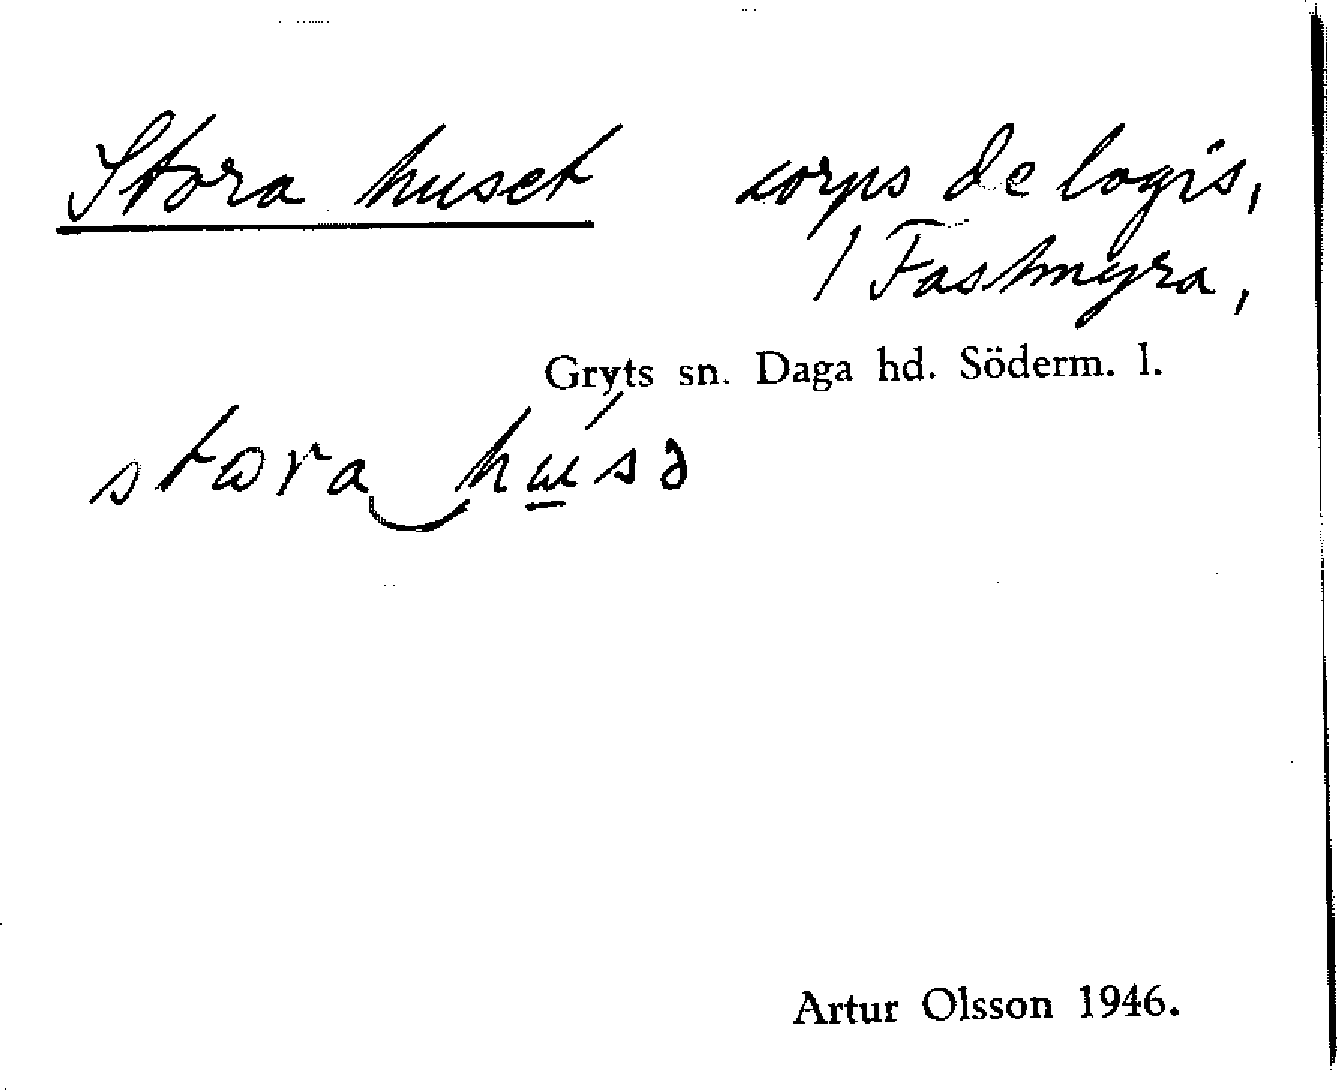 Stora huset corps de logis,
/ Fastmyra,
Gryts sn. Daga hd. Söderm. l.
stɷra‿hú̲sə
Artur Olsson 1946.